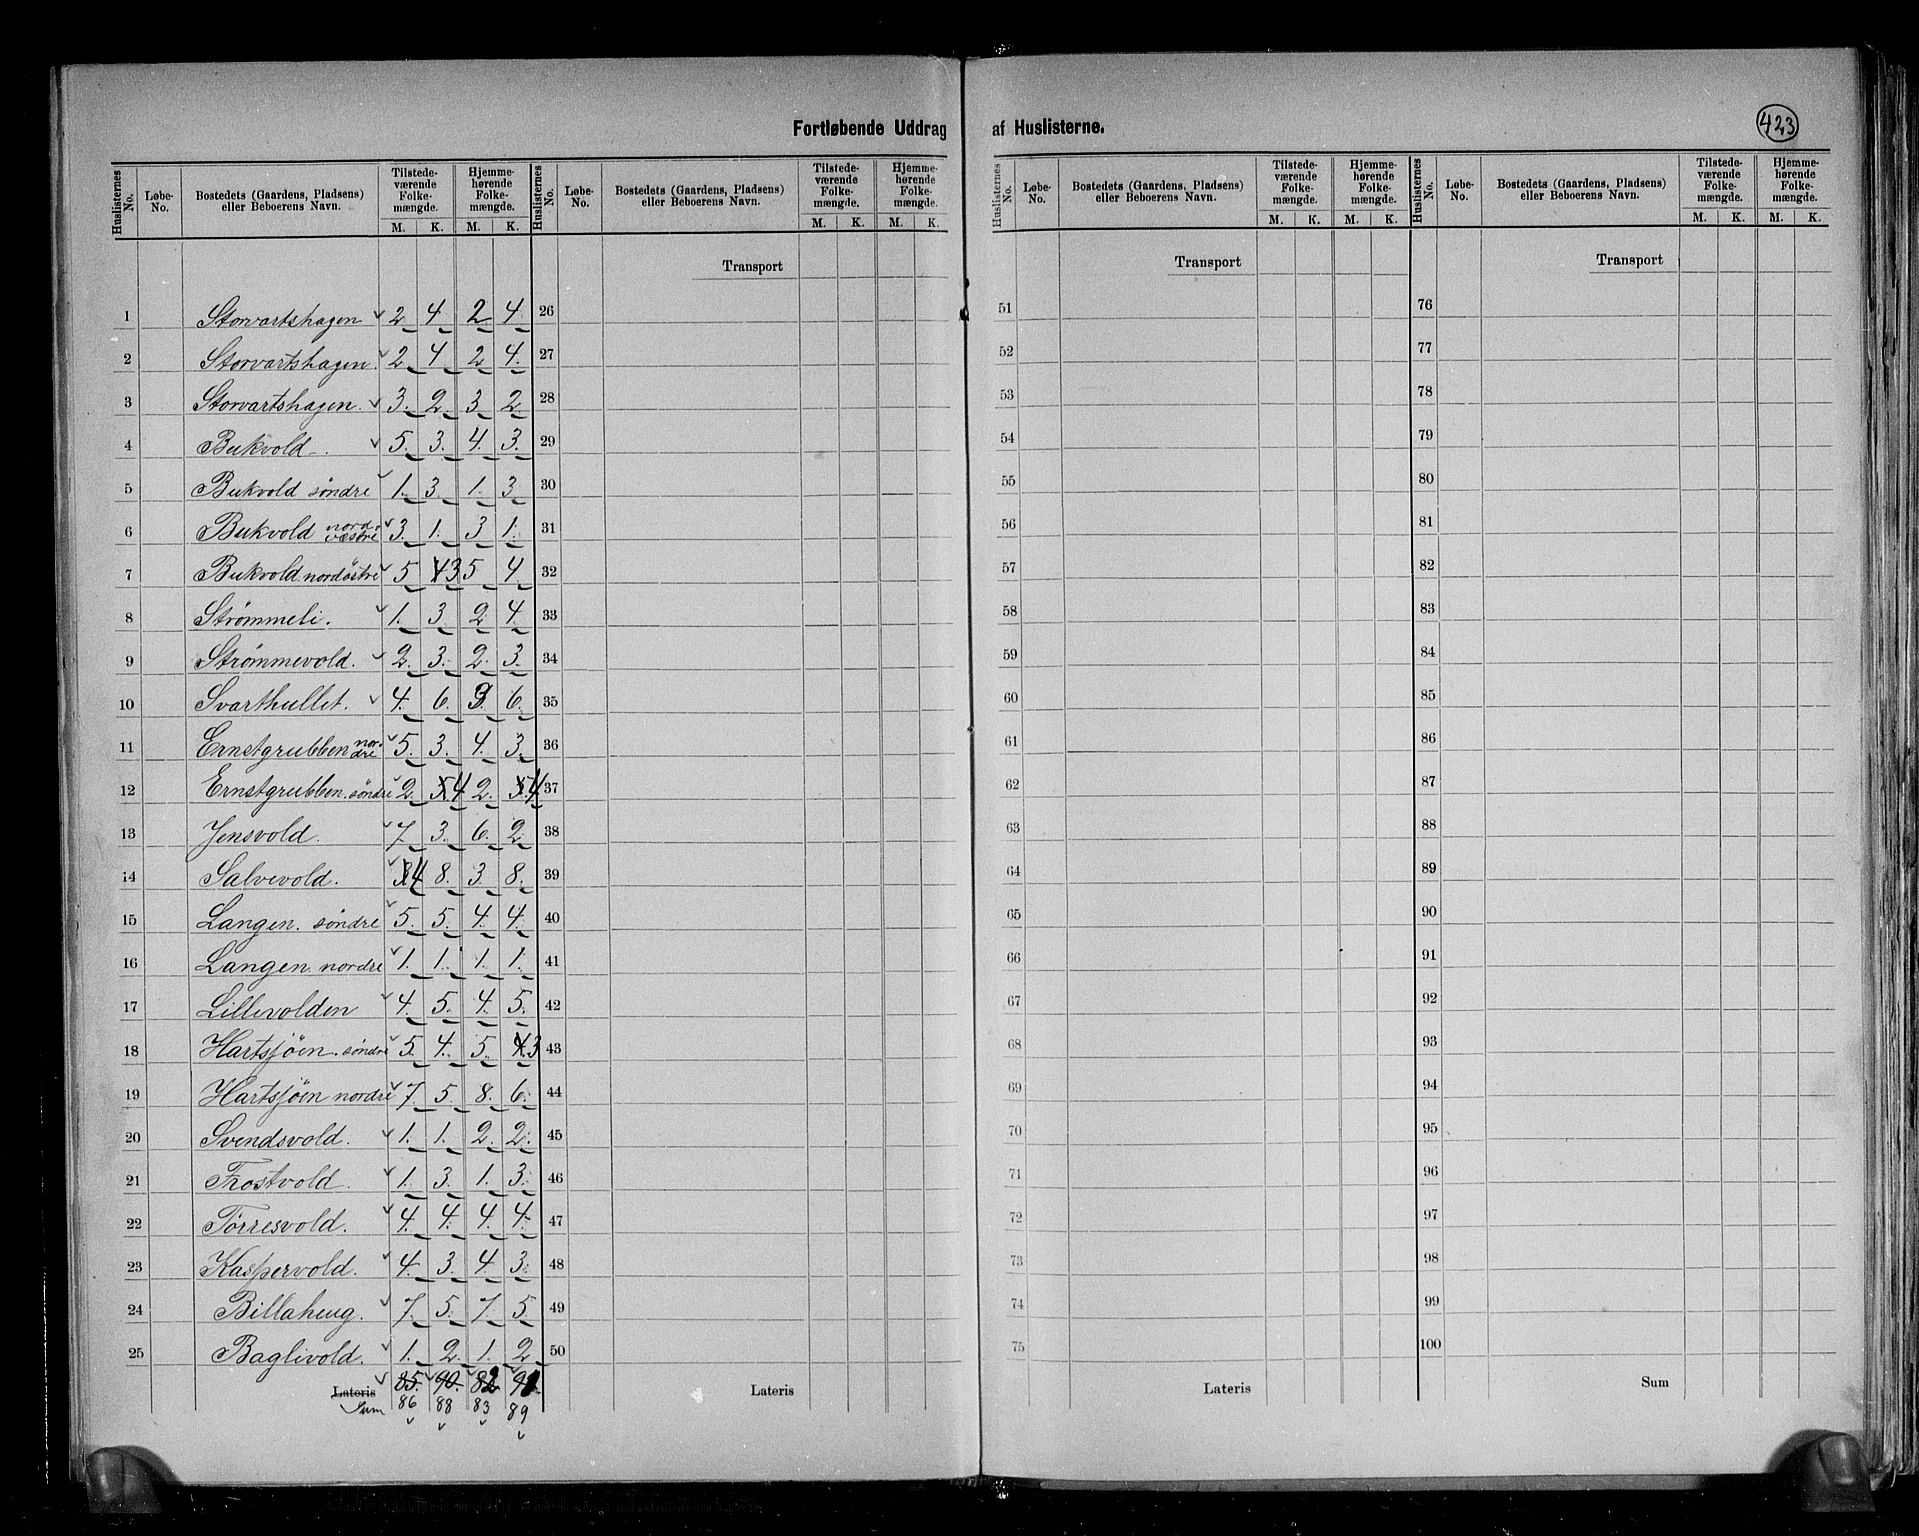 Fortløbende Uddrag af Huslisterne.
423
Huslisternes No. | Løbe-No. | Bostedets (Gaardens, Pladsens) eller Beboerens Navn. | Tilstedeværende Folkemængde. M. K. | Hjemmehørende Folkemængde. M. K.
Huslisternes No. | Løbe-No. | Bostedets (Gaardens, Pladsens) eller Beboerens Navn. | Tilstedeværende Folkemængde. M. K. | Hjemmehørende Folkemængde. M. K.
Huslisternes No. | Løbe-No. | Bostedets (Gaardens, Pladsens) eller Beboerens Navn. | Tilstedeværende Folkemængde. M. K. | Hjemmehørende Folkemængde. M. K.
Huslisternes No. | Løbe-No. | Bostedets (Gaardens, Pladsens) eller Beboerens Navn. | Tilstedeværende Folkemængde. M. K. | Hjemmehørende Folkemængde. M. K.
Transport Transport Transport
1 Storvartshagen 2 4 2 4 26 51 76
2 Storvartshagen. 2 4 2 4. 27 52 77
3 Storvartshagen. 3. 2 3 2 28 53 78
4 Bukvold. 5. 3. 4. 3. 29 54 79
5 Bukvold söndre 1. 3. 1. 3 30 55 80
6 Bukvold nordvæstre 3. 1. 3 1. 31 56 81
7 Bukvold nordöstre 5 4 3 5 4 32 57 82
8 Strömmeli. 1. 3 2 4. 33 58 83
9 Strömmevold. 2. 3. 2. 3. 34 59 84
10 Svarthullet. 4. 6. 3. 6. 35 60 85
11 Ernstgrubben nordre 5. 3. 4. 3. 36 61 86
12 Ernstgrubben. söndre 2. 5. 4 2. 5. 4 37 62 87
13 Jensvold. 7. 3. 6. 2. 38 63 88
14 Salvevold. 3 4 8. 3. 8. 39 64 89
15 Langen. söndre 5. 5. 4. 4. 40 65 90
16 Langen. nordre 1. 1. 1. 1. 41 66 91
17 Lillevolden 4. 5. 4. 5. 42 67 92
18 Hartsjöen. söndre 5. 4. 5. 4. 3 43 68 93
19 Hartsjöen nordre 7. 5. 8. 6. 44 69 94
20 Svendsvold. 1. 1. 2. 2. 45 70 95
21 Trostvold. 1. 3. 1. 3. 46 71 96
22 Törresvold. 4. 4. 4. 4. 47 72 97
23 Kaspervold. 4. 3. 4. 3. 48 73 98
24 Billaheug. 7. 5. 7. 5 49 74 99
25 Baglivold. 1. 2. 1. 2 50 75 100
Lateris 85. 90. 82 Lateris Lateris Sum
Sum 86 88 83 89